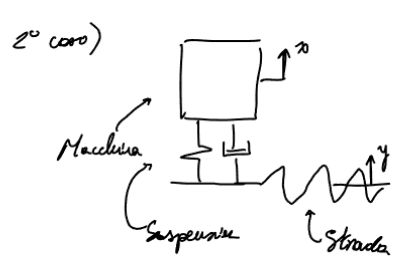 2° caso)
x
Macchina
y
Sospensione
Strada